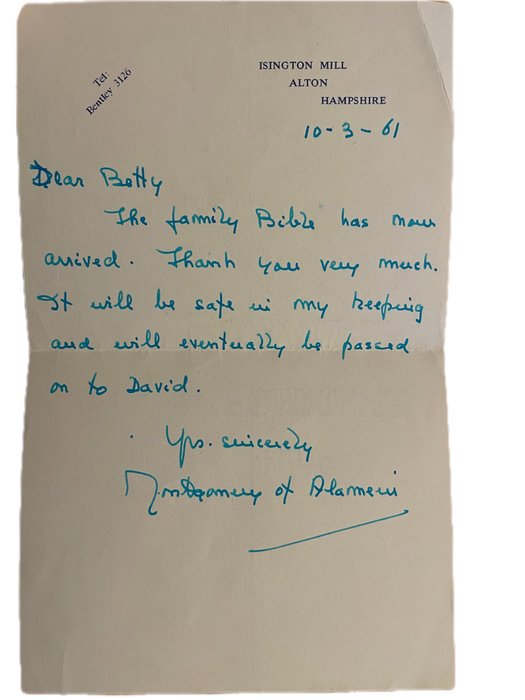 Tel:
Bentley 3126
ISINGTON MILL
ALTON
HAMPSHIRE
10-3-61
Dear Betty
The family Bible has now
arrived. Thank you very much.
It will be safe in my keeping
and will eventually be passed
on to David.
Yrs. sincerely
Montgomery of Alamein